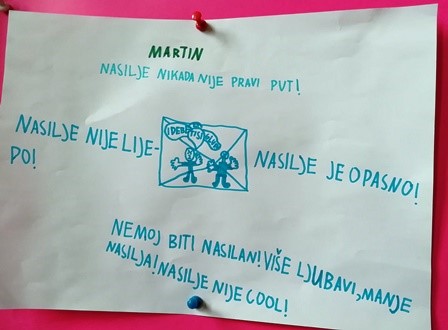 MARTIN
NASILJE NIKADA NIJE PRAVI PUT!
NASILJE NIJE LIJE-
PO!
NASILJE JE OPASNO!
NEMOJ BITI NASILAN! VIŠE LJUBAVI, MANJE
NASILJA! NASILJE NIJE COOL!